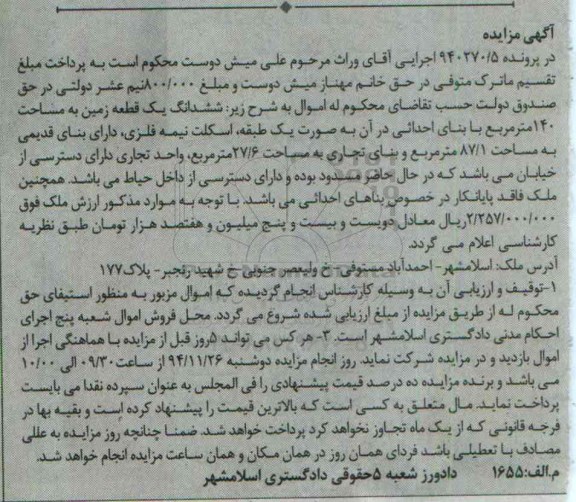 آگهی مزایده
در پرونده ۹۴۰۲۷۰/۵ اجرایی آقای وراث مرحوم علی میش دوست محکوم است به پرداخت مبلغ
تقسیم ماترک متوفی در حق خانم مهناز میش دوست و مبلغ ۸۰۰/۰۰۰نیم عشر دولتی در حق
صندوق دولت حسب تقاضای محکوم له اموال به شرح زیر: ششدانگ یک قطعه زمین به مساحت
۱۴۰مترمربع با بنای احداثی در آن به صورت یک طبقه، اسکلت نیمه فلزی، دارای بنای قدیمی
به مساحت ۸۷/۱ مترمربع و بنای تجاری به مساحت ۲۷/۶مترمربع، واحد تجاری دارای دسترسی از
خیابان می باشد که در حال حاضر مسدود بوده و دارای دسترسی از داخل حیاط می باشد. همچنین
ملک فاقد پایانکار در خصوص بناهای احداثی می باشد. با توجه به موارد مذکور ارزش ملک فوق
۲/۲۵۷/۰۰۰/۰۰۰ریال معادل دویست و بیست و پنج میلیون و هفتصد هزار تومان طبق نظریه
کارشناسی اعلام می گردد.
آدرس ملک: اسلامشهر- احمدآباد مستوفی-خ ولیعصر جنوبی-خ شهید رنجبر- پلاک۱۷۷
۱-توقیف و ارزیابی آن به وسیله کارشناس انجام گردیده که اموال مزبور به منظور استیفای حق
محکوم له از طریق مزایده از مبلغ ارزیابی شده شروع می گردد. محل فروش اموال شعبه پنج اجرای
احکام مدنی دادگستری اسلامشهر است. ۳- هر کس می تواند ۵روز قبل از مزایده با هماهنگی اجرا از
اموال بازدید و در مزایده شرکت نماید. روز انجام مزایده دوشنبه ۹۴/۱۱/۲۶ از ساعت۰۹/۳۰ الی ۱۰/۰۰
می باشد و برنده مزایده ده درصد قیمت پیشنهادی را فی المجلس به عنوان سپرده نقدا می بایست
پرداخت نماید. مال متعلق به کسی است که بالاترین قیمت را پیشنهاد کرده است و بقیه بها در
فرجه قانونی که از یک ماه تجاوز نخواهد کرد پرداخت خواهد شد. ضمنا چنانچه روز مزایده به عللی
مصادف با تعطیلی باشد فردای همان روز در همان مکان و همان ساعت مزایده انجام خواهد شد.
م.الف:۱۶۵۵ دادورز شعبه ۵حقوقی دادگستری اسلامشهر